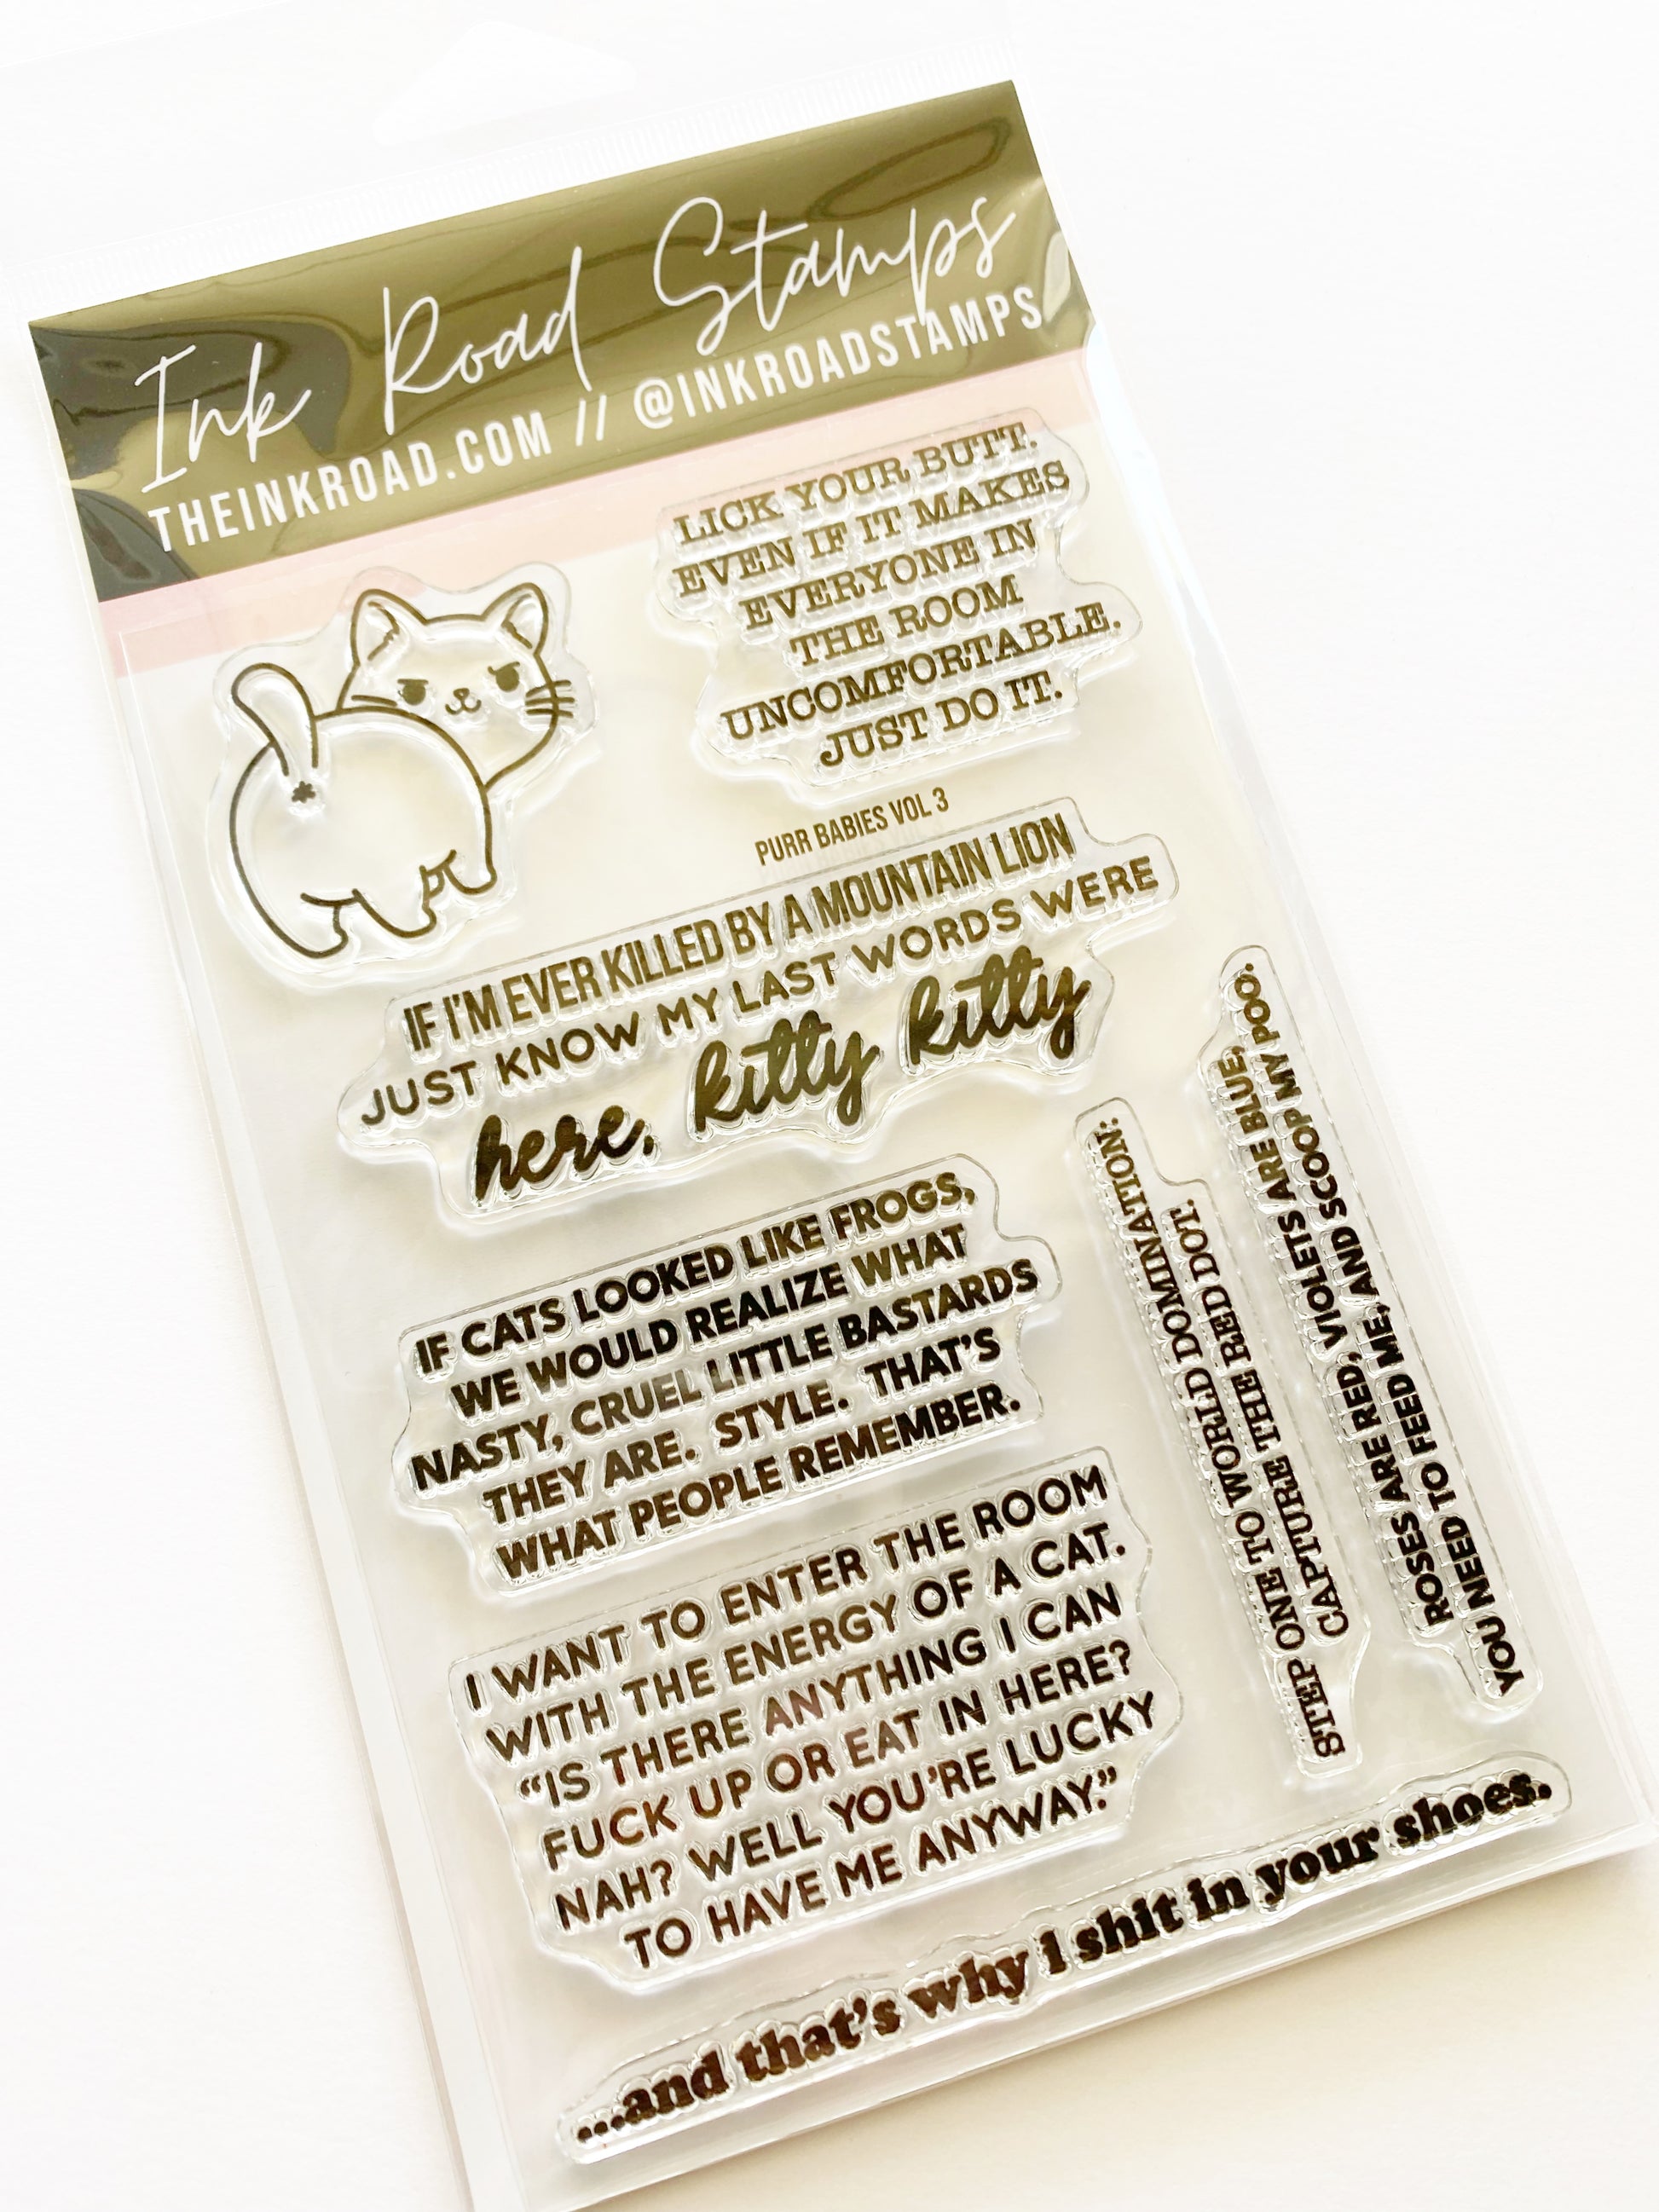 Ink Road Stamps
THEINKROAD.COM // @INKROADSTAMPS
LICK YOUR BUTT.
EVEN IF IT MAKES
EVERYONE IN
THE ROOM
UNCOMFORTABLE.
JUST DO IT.
PURR BABIES VOL 3
IF I'M EVER KILLED BY A MOUNTAIN LION
JUST KNOW MY LAST WORDS WERE
here, kitty kitty
IF CATS LOOKED LIKE FROGS,
WE WOULD REALIZE WHAT
NASTY, CRUEL LITTLE BASTARDS
THEY ARE. STYLE. THAT'S
WHAT PEOPLE REMEMBER.
STEP ONE TO WORLD DOMINATION:
CAPTURE THE RED DOT.
ROSES ARE RED, VIOLETS ARE BLUE,
YOU NEED TO FEED ME, AND SCOOP MY POO.
I WANT TO ENTER THE ROOM
WITH THE ENERGY OF A CAT.
“IS THERE ANYTHING I CAN
FUCK UP OR EAT IN HERE?
NAH? WELL YOU’RE LUCKY
TO HAVE ME ANYWAY.”
...and that's why I shit in your shoes.